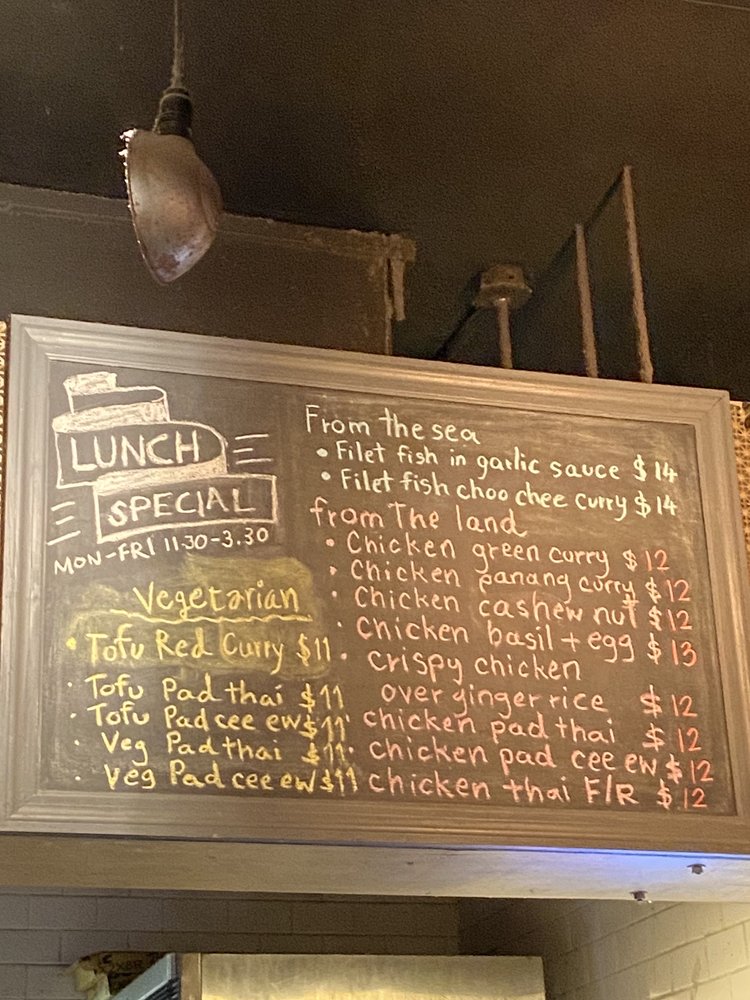 LUNCH
SPECIAL
MON-FRI 11.30-3.30
Vegetarian
• Tofu Red Curry $11
• Tofu Pad thai $11
• Tofu Pad cee ew $11
• Veg Pad thai $11
• Veg Pad cee ew $11
From the sea
• Filet fish in garlic sauce $14
• Filet fish choo chee curry $14
from The land
• Chicken green curry $12
• Chicken panang curry $12
• Chicken cashew nut $12
• Chicken basil + egg $13
• crispy chicken
over ginger rice $12
• chicken pad thai $12
• chicken pad cee ew $12
chicken thai F/R $12